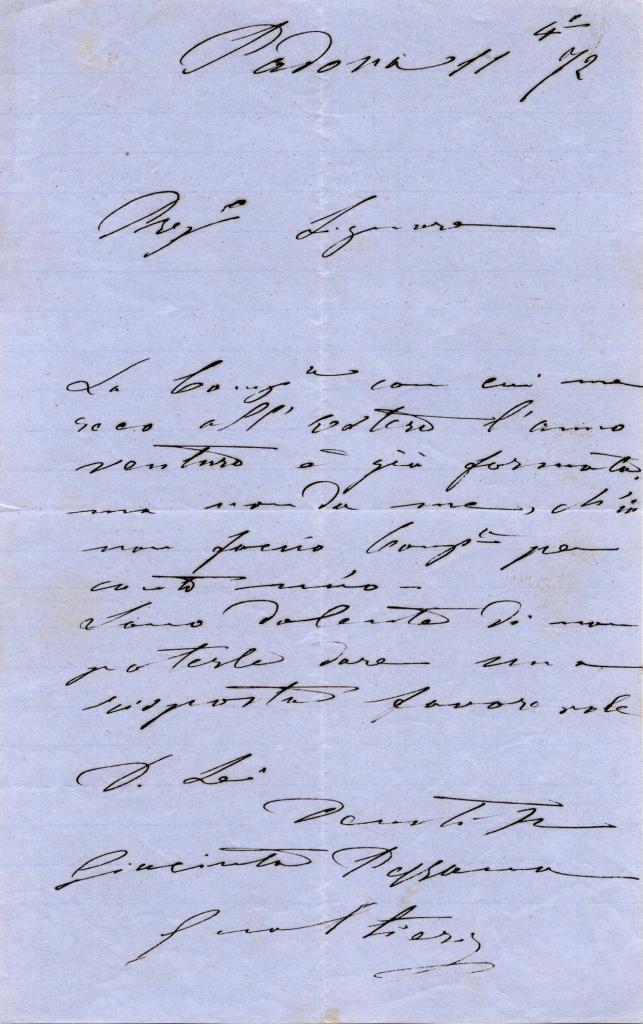 Padova 11 4º/72
Preg.º Signore
La Comp.ª con cui me
reco all'estero l'anno
venturo è già formata,
ma non da me, ch'io
non faccio Comp.ª per
conto mio –
Sono dolente di non
poterle dare una
risposta favorevole
Di Lei
Devotis.
Giacinta Pezzana
Gualtieri